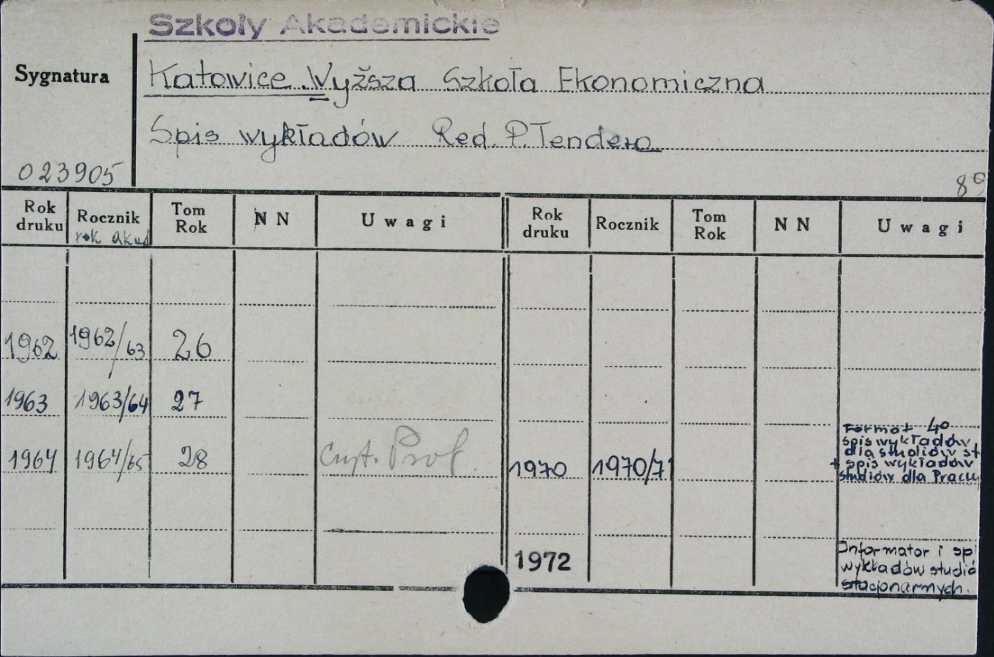 Szkoły Akademickie
Sygnatura
Katowice. Wyższa Szkoła Ekonomiczna
Spis wykładów Red. P. Tendera
023905
8°
Rok druku Rocznik rok akad Tom Rok N N Uwagi Rok druku Rocznik Tom Rok N N Uwagi
1962 1962/63 26
1963 1963/64 27
1964 1964/65 28
1970 1970/71
Format 4°
spis wykładów
dla studiów st
+ spis wykładów
studiów dla Pracu
1972
Informator i spi
wykładów studió
stacjonarnych.